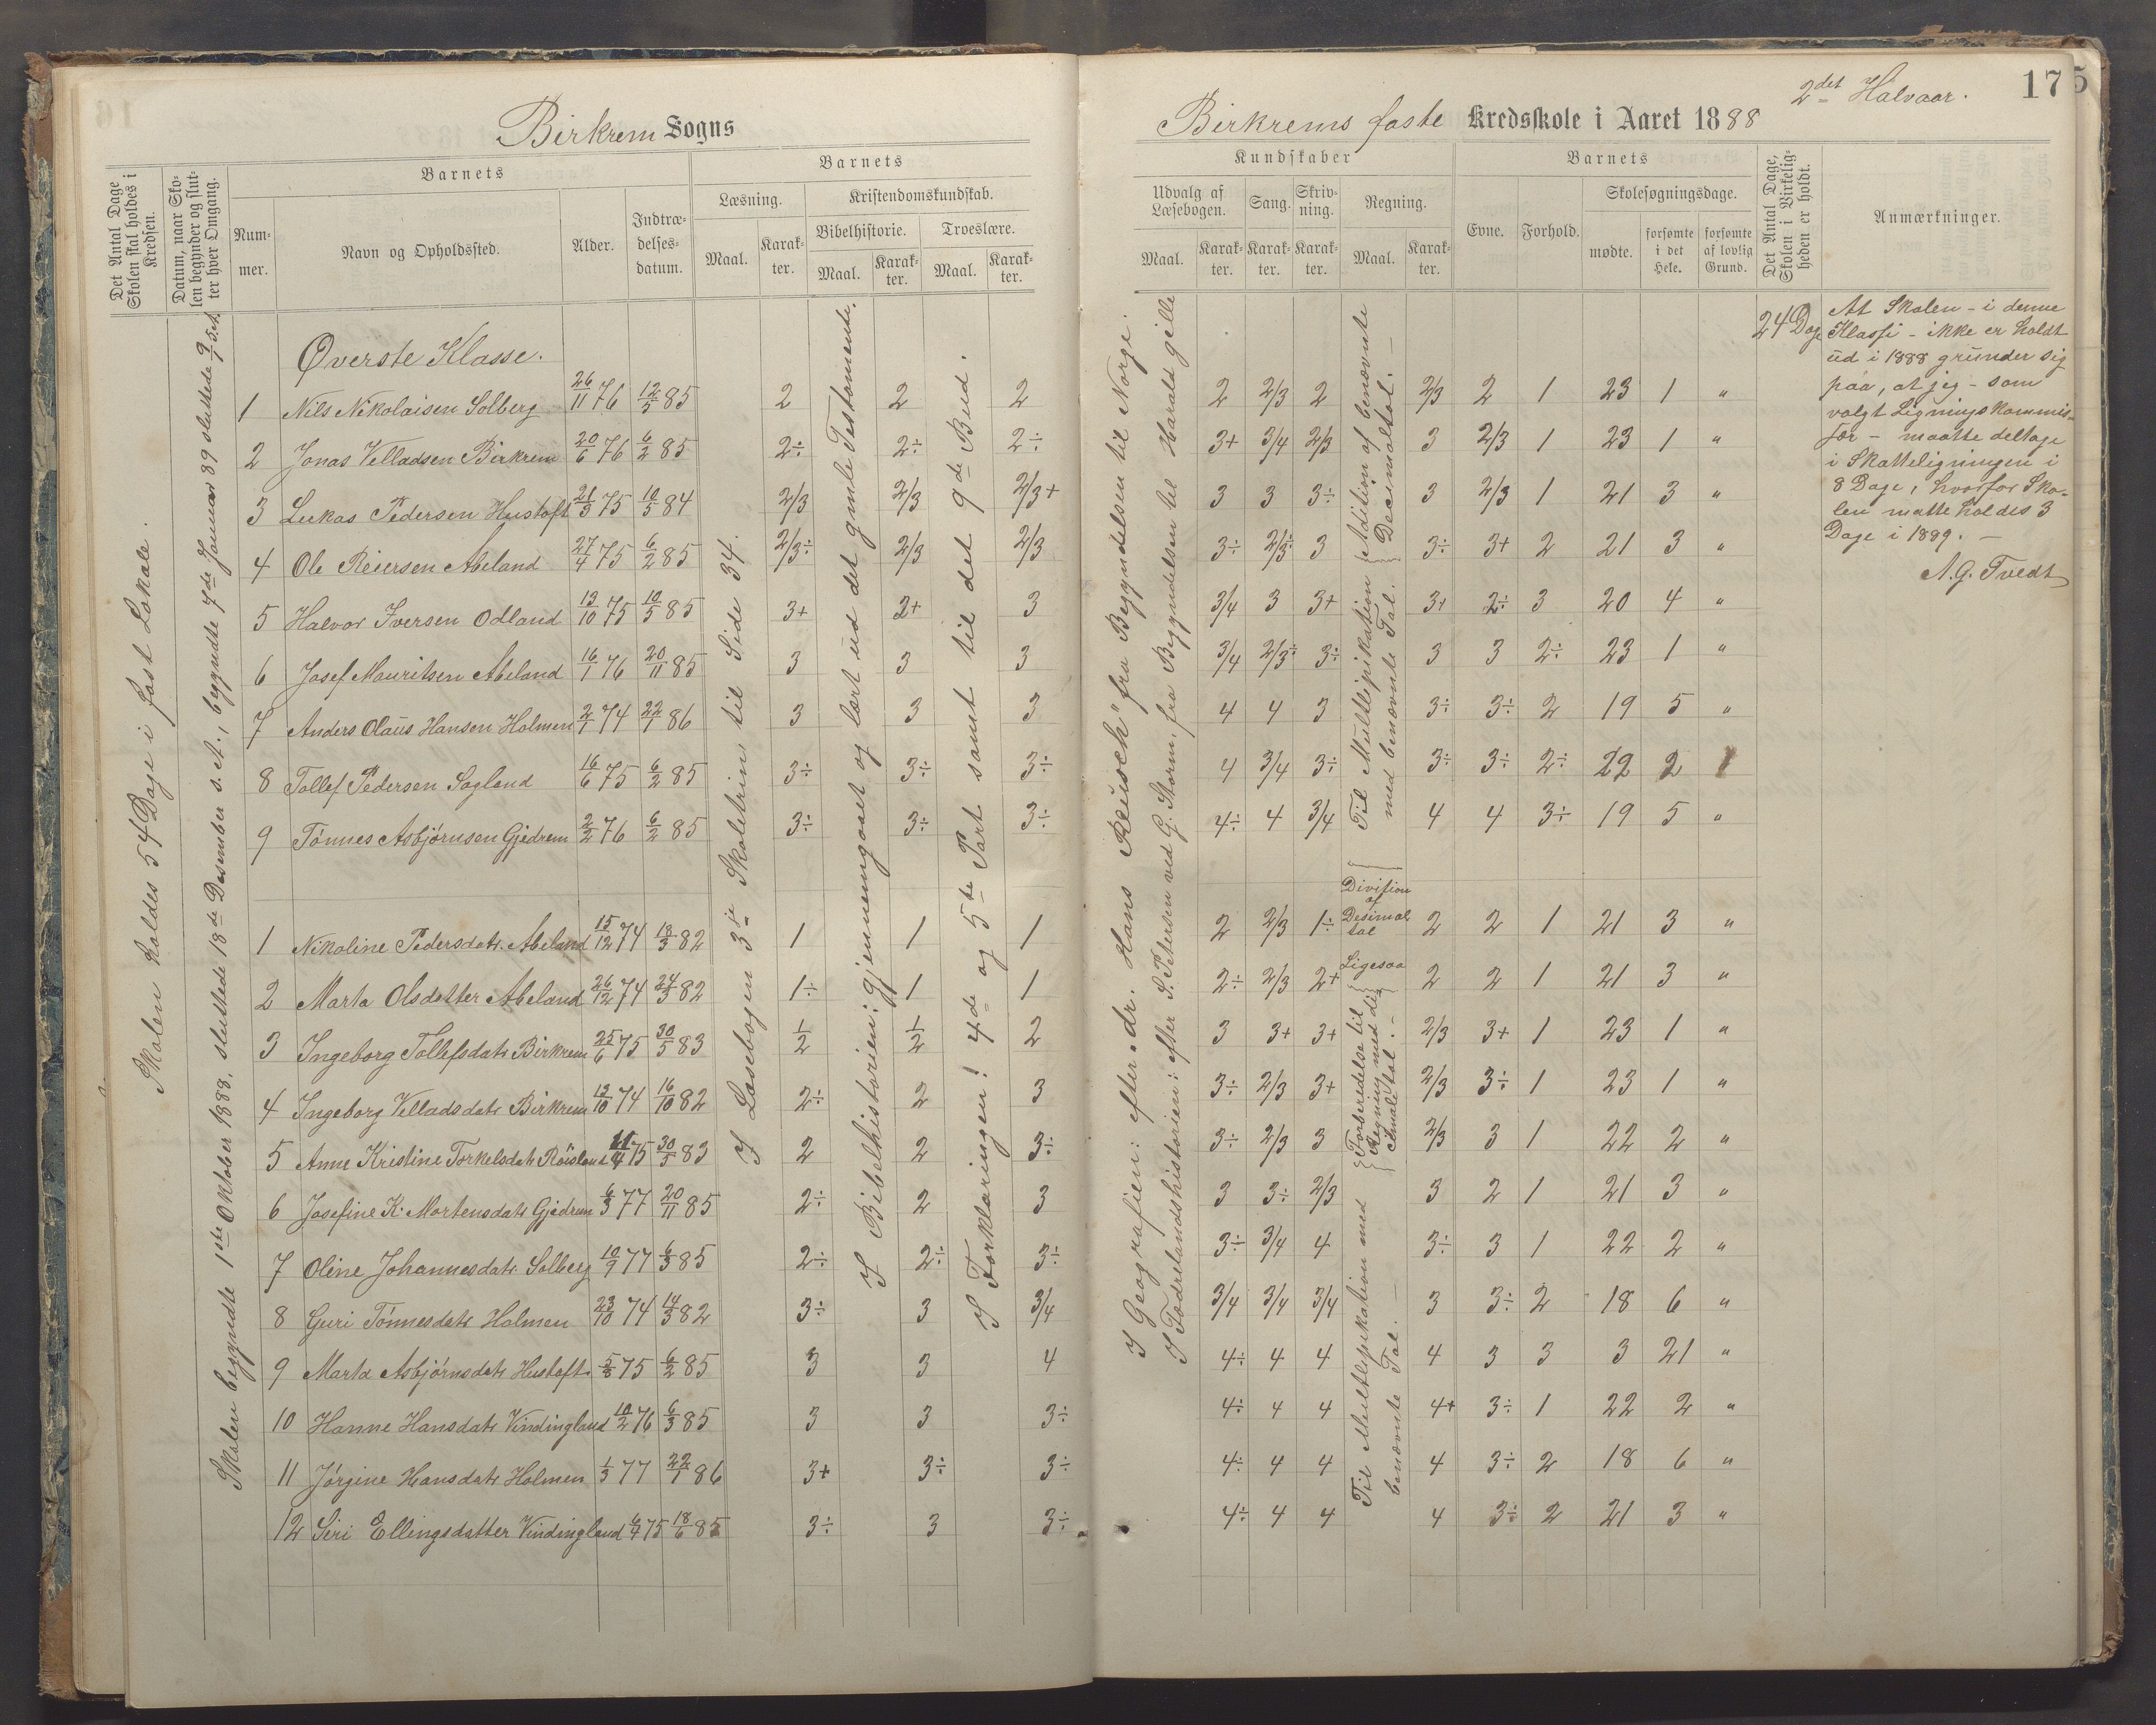 Birkrem Sogns
Det Antal Dage Skolen skal holdes i Kredsen.
Datum, naar Skolen begynder og slutter hver Omgang.
Barnets
Nummer.
Navn og Opholdssted.
Alder.
Indtrædelsesdatum.
Barnets
Læsning.
Maal.
Karakter.
Kristendomskundskab.
Bibelhistorie.
Maal.
Karakter.
Troeslære.
Maal.
Karakter.
Skolen holdes 54 Dage i fast Lokale.
Skolen begyndte 1ste Oktober 1888, sluttede 18de Desember s. A., begyndte 7de Januar 89 sluttede 9/1 s. A.
I Læsebogen 3die Skoletrin til Side 34.
I Bibelhistorien: gjennemgaaet og lært ud det gamle Testamente.
I Forklaringen! 4de og 5te Part samt til det 9de Bud.
Øverste Klasse.
1 Nils Nikolaisen Solberg 26/11 76 12/5 85 2 2 2
2 Jonas Velladsen Birkrem 20/6 76 6/2 85 2÷ 2÷ 2÷
3 Lukas Pedersen Hustoft 21/3 75 10/5 84 2/3 2/3 2/3+
4 Ole Reiersen Abeland 27/4 75 6/2 85 2/3÷ 2/3 2/3
5 Halvor Iversen Odland 13/10 75 10/5 85 3+ 2+ 3
6 Josef Mauritsen Abeland 16/1 76 20/11 85 3 3 3
7 Anders Olaus Hansen Holmen 2/1 74 22/1 86 3 3 3
8 Tollef Pedersen Sagland 16/6 75 6/2 85 3÷ 3÷ 3÷
9 Tønnes Asbjørnsen Gjedrem 2/2 76 6/2 85 3÷ 3÷ 3÷
1 Nikoline Pedersdatr. Abeland 15/12 74 13/3 82 1 1 1
2 Marta Olsdatter Abeland 26/12 74 24/3 82 1÷ 1 1
3 Ingeborg Tollefsdatr Birkrem 25/6 75 30/5 83 1/2 1/2 2
4 Ingeborg Velladsdatr Birkrem 12/10 74 16/10 82 2÷ 2 3
5 Anne Kristine Torkelsdatr Røisland 11/4 75 30/5 83 2 2 3÷
6 Josefine K. Mortensdatr Gjedrem 6/3 77 20/11 85 2÷ 2 3
7 Oline Johannesdatr Solberg 10/9 77 6/3 85 2÷ 2÷ 3÷
8 Guri Tønnesdatr Holmen 23/10 74 14/3 82 3÷ 3 3/4
9 Marta Asbjørnsdatr Hustoft 5/8 75 6/2 85 3 3 4
10 Hanne Hansdatr Vindingland 10/2 76 6/3 85 3 3 3÷
11 Jørgine Hansdatr Holmen 1/3 77 22/1 86 3+ 3÷ 3÷
12 Siri Ellingsdatter Vindingland 6/7 75 18/6 85 3÷ 3 3÷
2det Halvaar.
175
Birkrems faste Kredsskole i Aaret 1888
Kundskaber
Udvalg af Læsebogen.
Maal.
Karakter.
Sang.
Karakter.
Skrivning.
Karakter.
Regning.
Maal.
Karakter.
Barnets
Evne.
Forhold.
Skolesøgningsdage.
mødte.
forsømte i det Hele.
forsømte af lovlig Grund.
Det Antal Dage, Skolen i Virkeligheden er holdt.
Anmærkninger.
I Geografien: efter dr. Hans Reusch" fra Begyndelsen til Norge.
I Fædrelandshistorien: efter S. Petersen ved G. Storm, fra Begyndelsen til Harald gille
Til Multiplikation med benævnte Tal.
Adition af benævnte Decimaltal.
Division af Desimaltal
Ligesaa
Forberedelse til Regning med decimaltal.
Til Multiplikation med benævnte Tal.
2 2/3 2 2/3 2 1 23 1 "
3+ 3/4 2/3 3 2/3 1 23 1 "
3 3 3÷ 3 2/3 1 21 3 "
3÷ 2/3÷ 3 3÷ 3+ 2 21 3 "
3/4 3 3+ 3+ 2÷ 3 20 4 "
3/4 2/3÷ 3÷ 3 3 2÷ 23 1 "
4 4 3 3÷ 3÷ 2 19 5 "
4 3/4 3÷ 3÷ 3÷ 2÷ 22 2 1
4÷ 4 3/4 4 4 3÷ 19 5 "
2 2/3 1÷ 2 2 1 21 3 "
2÷ 2/3 2+ 2 2 1 21 3 "
3 3+ 3+ 2/3 3+ 1 23 1 "
3÷ 2/3 3+ 2/3 3÷ 1 23 1 "
3÷ 2/3 3 2/3 3 1 22 2 "
3 3÷ 2/3 3 2 1 21 3 "
3÷ 3/4 4 3÷ 3 1 22 2 "
3/4 3/4 3/4 3 3÷ 2 18 6 "
4÷ 4 4 4 3 3 3 21 "
4÷ 4 4 4+ 3÷ 1 22 2 "
4÷ 4 4 4 3÷ 2 18 6 "
4÷ 4 4 4 3÷ 2 21 3 "
24 Dage
At Skolen - i denne
Klasse - ikke er holdt
ud i 1888 grunder sig
paa, at jeg - som
valgt Ligningskommis-
sær - maatte deltage
i Skatteligningen i
8 Dage, hvorfor Sko-
len matte holdes 3
Dage i 1889. —
A. G. Tvedt